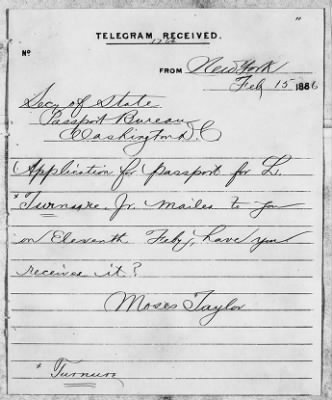 TELEGRAM RECEIVED.
No
FROM New York
Feb 15 1886
Secy of State
Passport Bureau
Washington D.C
Application for passport for L.
* Turnure, Jr. mailed to you
on Eleventh Feby, have you
received it?
Moses Taylor
* Turnure